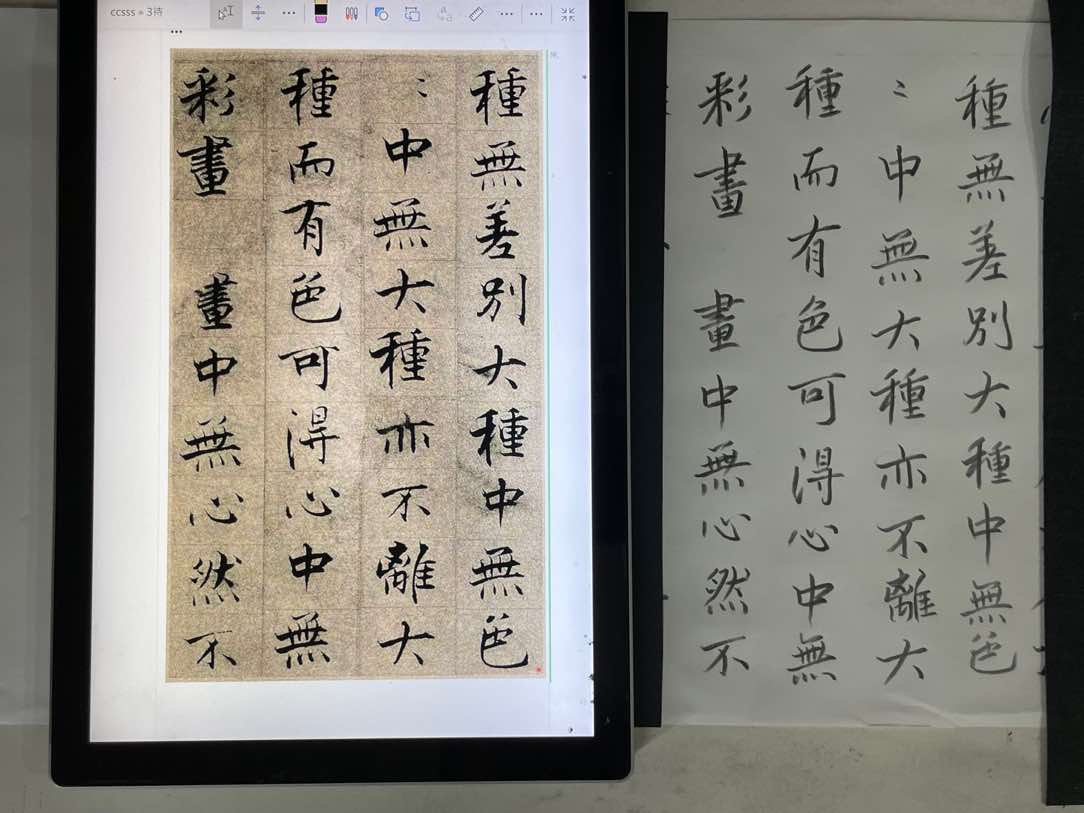 ccsss = 3待
種無差别大種中無色
〻中無大種亦不離大
種而有色可得心中無
彩畫 畫中無心然不
種無差别大種中無色
〻中無大種亦不離大
種而有色可得心中無
彩畫 畫中無心然不